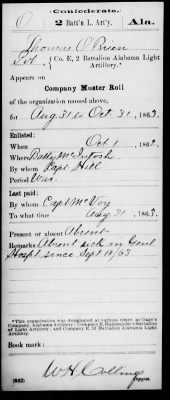 Confederate.
O 2 Batt'n L. Art'y. Ala.
Thomas O'Brien
Pvt., Co. E, 2 Battalion Alabama Light Artillery.*
Appears on
Company Muster Roll
of the organization named above,
for Aug 31 to Oct. 31, 1863.
Enlisted:
When Oct 1, 186
Where Batty McIntosh
By whom Capt Hill
Period War
Last paid:
By whom Capt McVoy
To what time Aug 31, 1863.
Present or absent Absent
Remarks: Absent sick in Genl
Hospt. since Sept 18/63
*This company was designated at various times as Gage's
Company, Alabama Artillery; Company E, Battalion
of Light Artillery, and Company E, 2d Battalion Alabama Light
Artillery.
Book mark:
W H Collings
(642) Copyist.